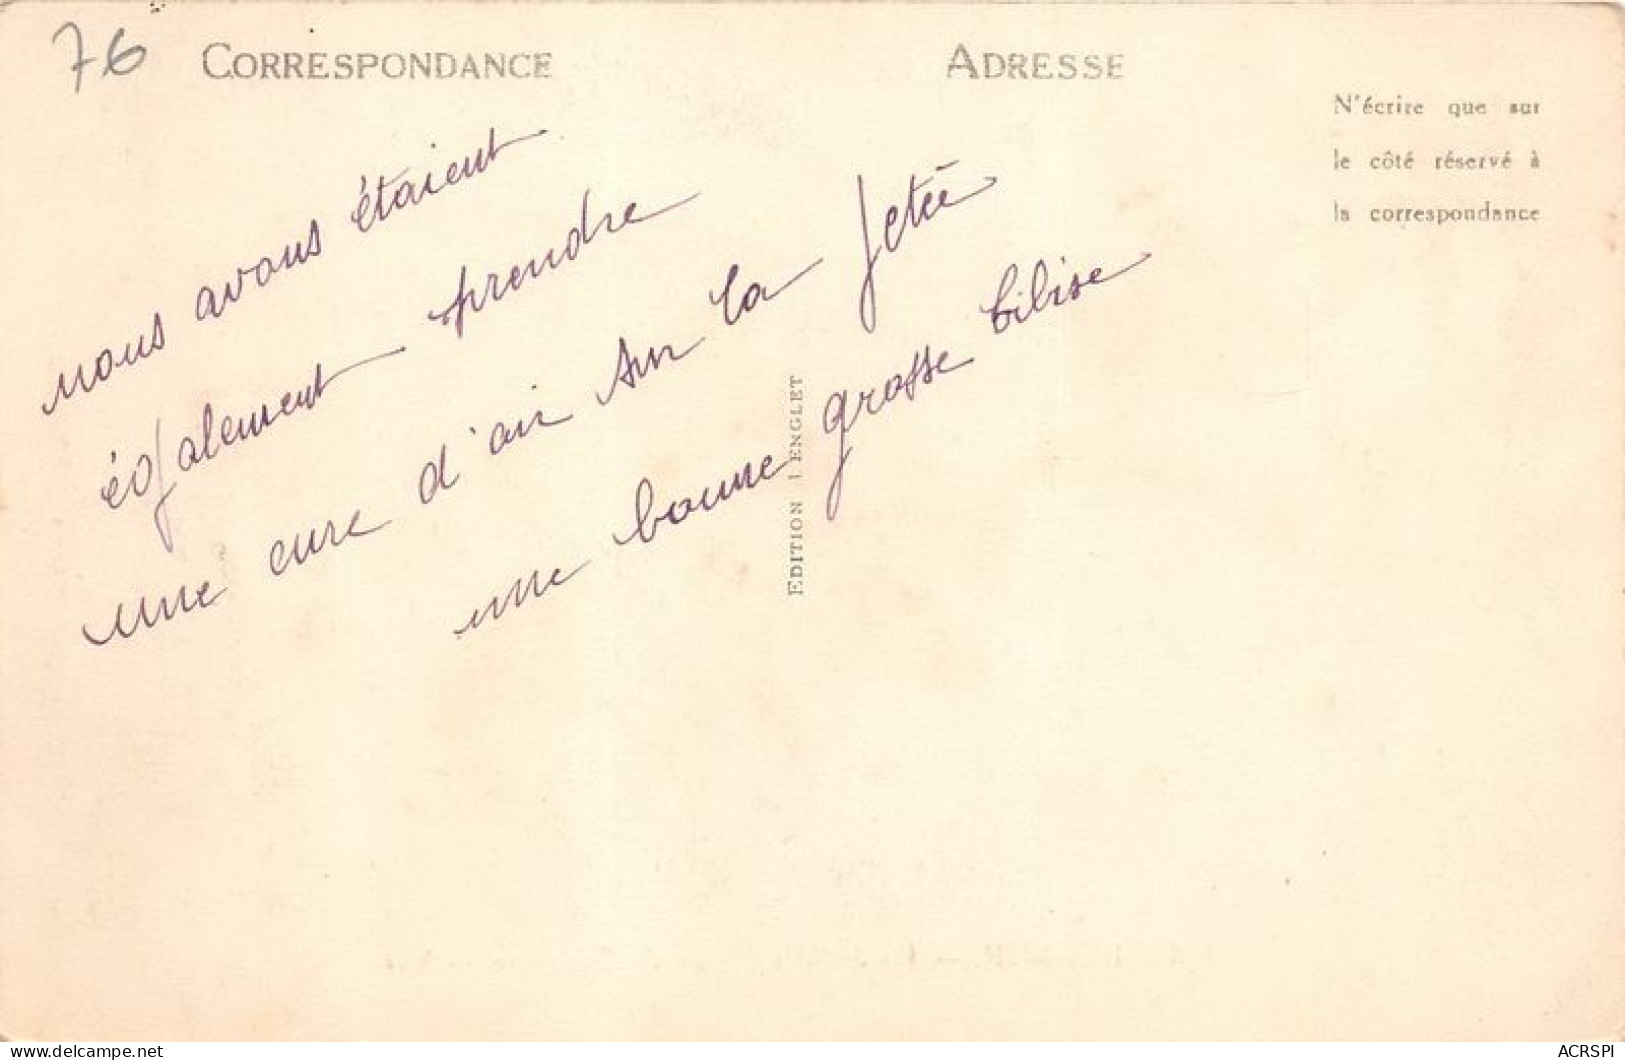 76
CORRESPONDANCE
ADRESSE
N'écrire que sur
le côté réservé à
la correspondance
nous avons étaient
également prendre
une cure d'air sur la Jetée
une bonne grosse bibise
EDITION LENGLET
delcampe.net
ACRSPI